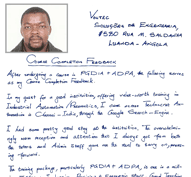 VOLTEC
SOLUÇÕES DE ENGENHARIA,
#580 RUA M. SALDANHA
LUANDA - ANGOLA
COURSE COMPLETION FEEDBACK
After undergoing a course in PGDIA + ADPA, the following serves
as my Course Completion Feedback.
In my quest for a good institution, offering value-worth training in
Industrial Automation / Robotics, I came across Technocrat Automation
in Chennai - India, through the Google Search-Engine.
I had some pretty good stay at the Institution. The
warm reception and attention that I always got from both
the tutors and Admin Staff gave me the zeal to carry on,
forward.
The training package, particularly PGDIA + ADPA, is one in a